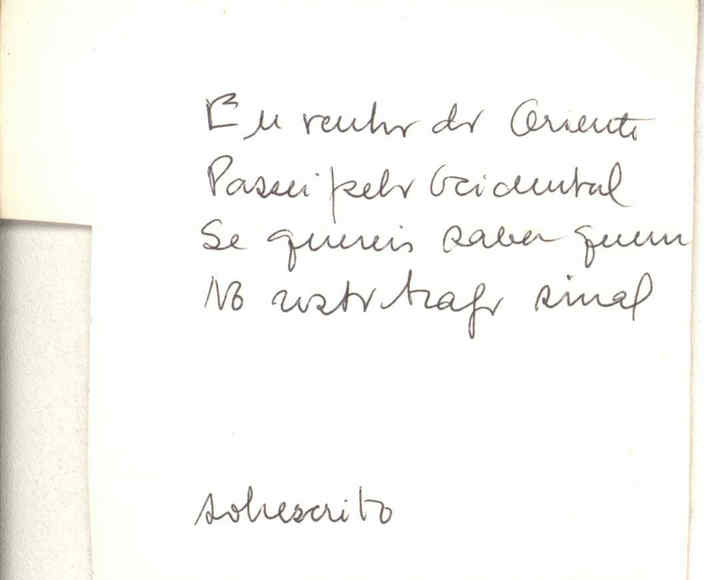 Eu venho do Oriente
Passei pelo Ocidental
Se quereis saber quem
No rosto trago sinal
sobrescrito